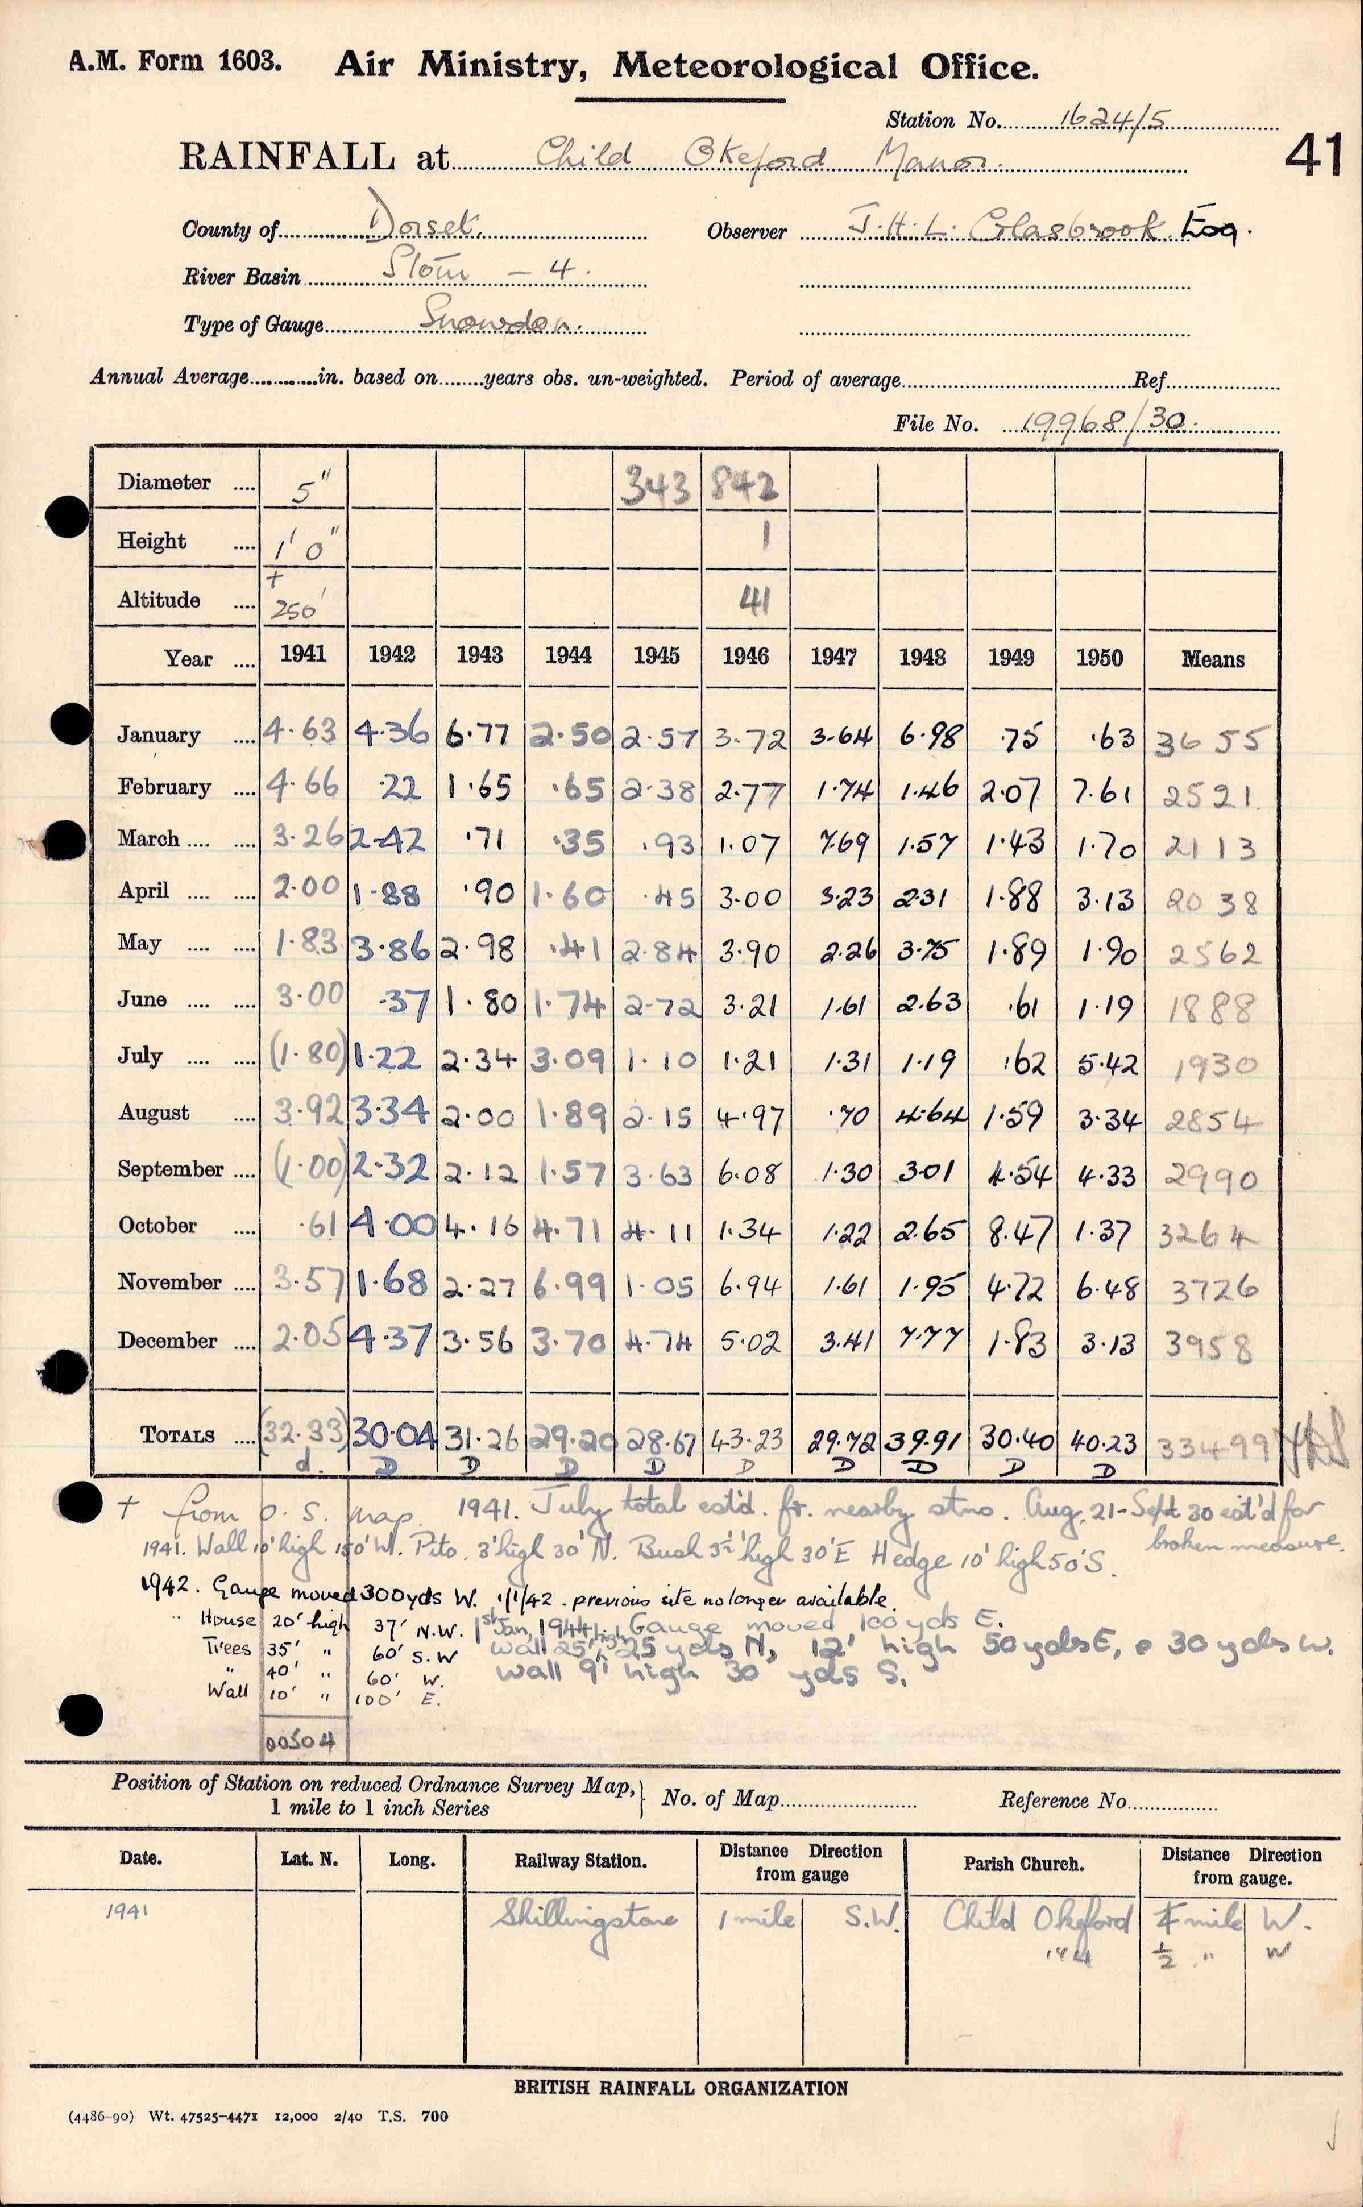 A.M. Form 1603. Air Ministry, Meteorological Office.
Station No. 1624/5
RAINFALL at Child Okeford Manor.
41
County of Dorset. Observer J.H.L. Glasbrook Esq.
River Basin Stour - 4.
Type of Gauge Snowdon.
Annual Average in. based on years obs. un-weighted. Period of average Ref
File No. 19968/30.
Diameter 5" 343 842
Height 1' 0" 1
Altitude + 250' 41
Year 1941 1942 1943 1944 1945 1946 1947 1948 1949 1950 Means
January 4.63 4.36 6.77 2.50 2.57 3.72 3.64 6.98 .75 .63 3655
February 4.66 .22 1.65 .65 2.38 2.77 1.74 1.46 2.07 7.61 2521
March 3.26 2.42 .71 .35 .93 1.07 7.69 1.57 1.43 1.70 2113
April 2.00 1.88 .90 1.60 .45 3.00 3.23 2.31 1.88 3.13 2038
May 1.83 3.86 2.98 .41 2.84 3.90 2.26 3.75 1.89 1.90 2562
June 3.00 .37 1.80 1.74 2.72 3.21 1.61 2.63 .61 1.19 1888
July (1.80) 1.22 2.34 3.09 1.10 1.21 1.31 1.19 .62 5.42 1930
August 3.92 3.34 2.00 1.89 2.15 4.97 .70 4.64 1.59 3.34 2854
September (1.00) 2.32 2.12 1.57 3.63 6.08 1.30 3.01 4.54 4.33 2990
October .61 4.00 4.16 4.71 4.11 1.34 1.22 2.65 8.47 1.37 3264
November 3.57 1.68 2.27 6.99 1.05 6.94 1.61 1.95 4.72 6.48 3726
December 2.05 4.37 3.56 3.70 4.74 5.02 3.41 7.77 1.83 3.13 3958
TOTALS (32.33) 30.04 31.26 29.20 28.67 43.23 29.72 39.91 30.40 40.23 33499
d. D D D D D D D D D
+ from O.S. map. 1941. July total est'd. fr. nearby stns. Aug. 21-Sept 30 est'd for
broken measure.
1941. Wall 10' high 150' W. Pito. 3' high 30' N. Bush 3½' high 30' E Hedge 10' high 50' S.
1942. Gauge moved 300yds W. 1/1/42. previous site no longer available.
" House 20' high 37' N.W. 1st Jan, 1944 Gauge moved 100 yds E.
Trees 35' " 60' S.W wall 25' high 25 yds N, 12' high 50 yds E, & 30 yds W.
" 40' " 60' W. wall 9' high 30 yds S.
Wall 10' " 100' E.
00504
Position of Station on reduced Ordnance Survey Map,
1 mile to 1 inch Series } No. of Map Reference No
Date. Lat. N. Long. Railway Station. Distance Direction from gauge Parish Church. Distance Direction from gauge.
1941 Shillingstone 1 mile S.W. Child Okeford ¼ mile W.
1944 ½ " W
BRITISH RAINFALL ORGANIZATION
(4486-90) Wt. 47525-4471 12,000 2/40 T.S. 700